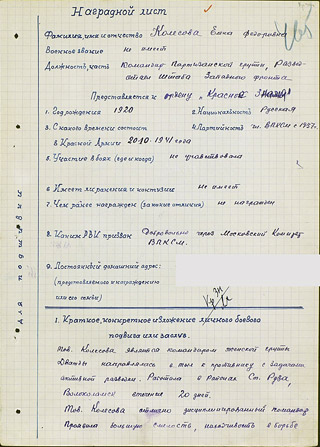 Наградной лист
Фамилия, имя и отчество Колесова Елена Федоровна
Военное звание не имеет
Должность, часть Командир Партизанской группы, Разве-
отдел Штаба Западного фронта
Представляется к ордену "Красное Знамя"
1. Год рождения 1920 2. Национальность Русская
3. С какого времени состоит 4. Партийность чл. ВЛКСМ с 1937г.
в Красной Армии 20 10 - 1941 года
5. Участие в боях (где и когда) не участвовала
6. Имеет ли ранения и контузии не имеет
7. Чем ранее награжден (за какие отличия) не награжден
8. Каким РВК призван Добровольно через Московский Комитет
ВЛКСМ.
9. Постоянный домашний адрес:
(представляемого к награждению
или его семьи)
Для подшивки
1. Краткое, конкретное изложение личного боевого
подвига или заслуг.
Тов. Колесова является командиром женской группы
Дважды направлялась в тыл к противнику с задачами
активной разведки. Работала в районах Ст. Руза,
Волоколамск в течение 20 дней.
Тов. Колесова отлично дисциплинированный командир
Проявила большую смелость, находчивость в борьбе